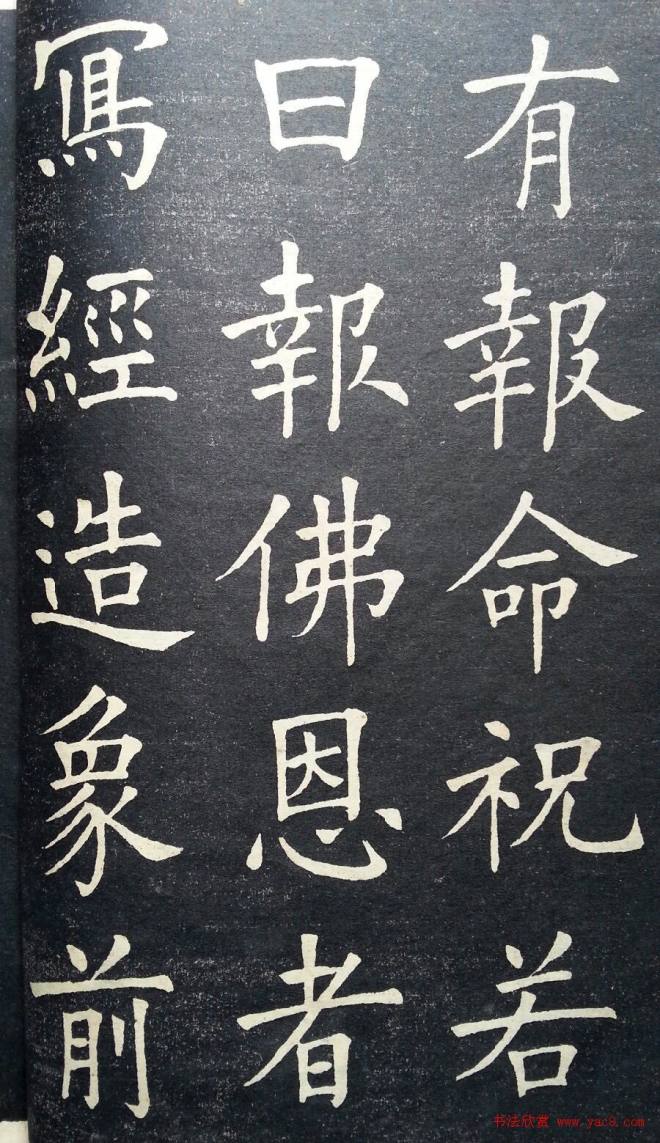 有報命祝若
曰報佛恩者
寫經造象前
书法欣赏 www.yac8.com